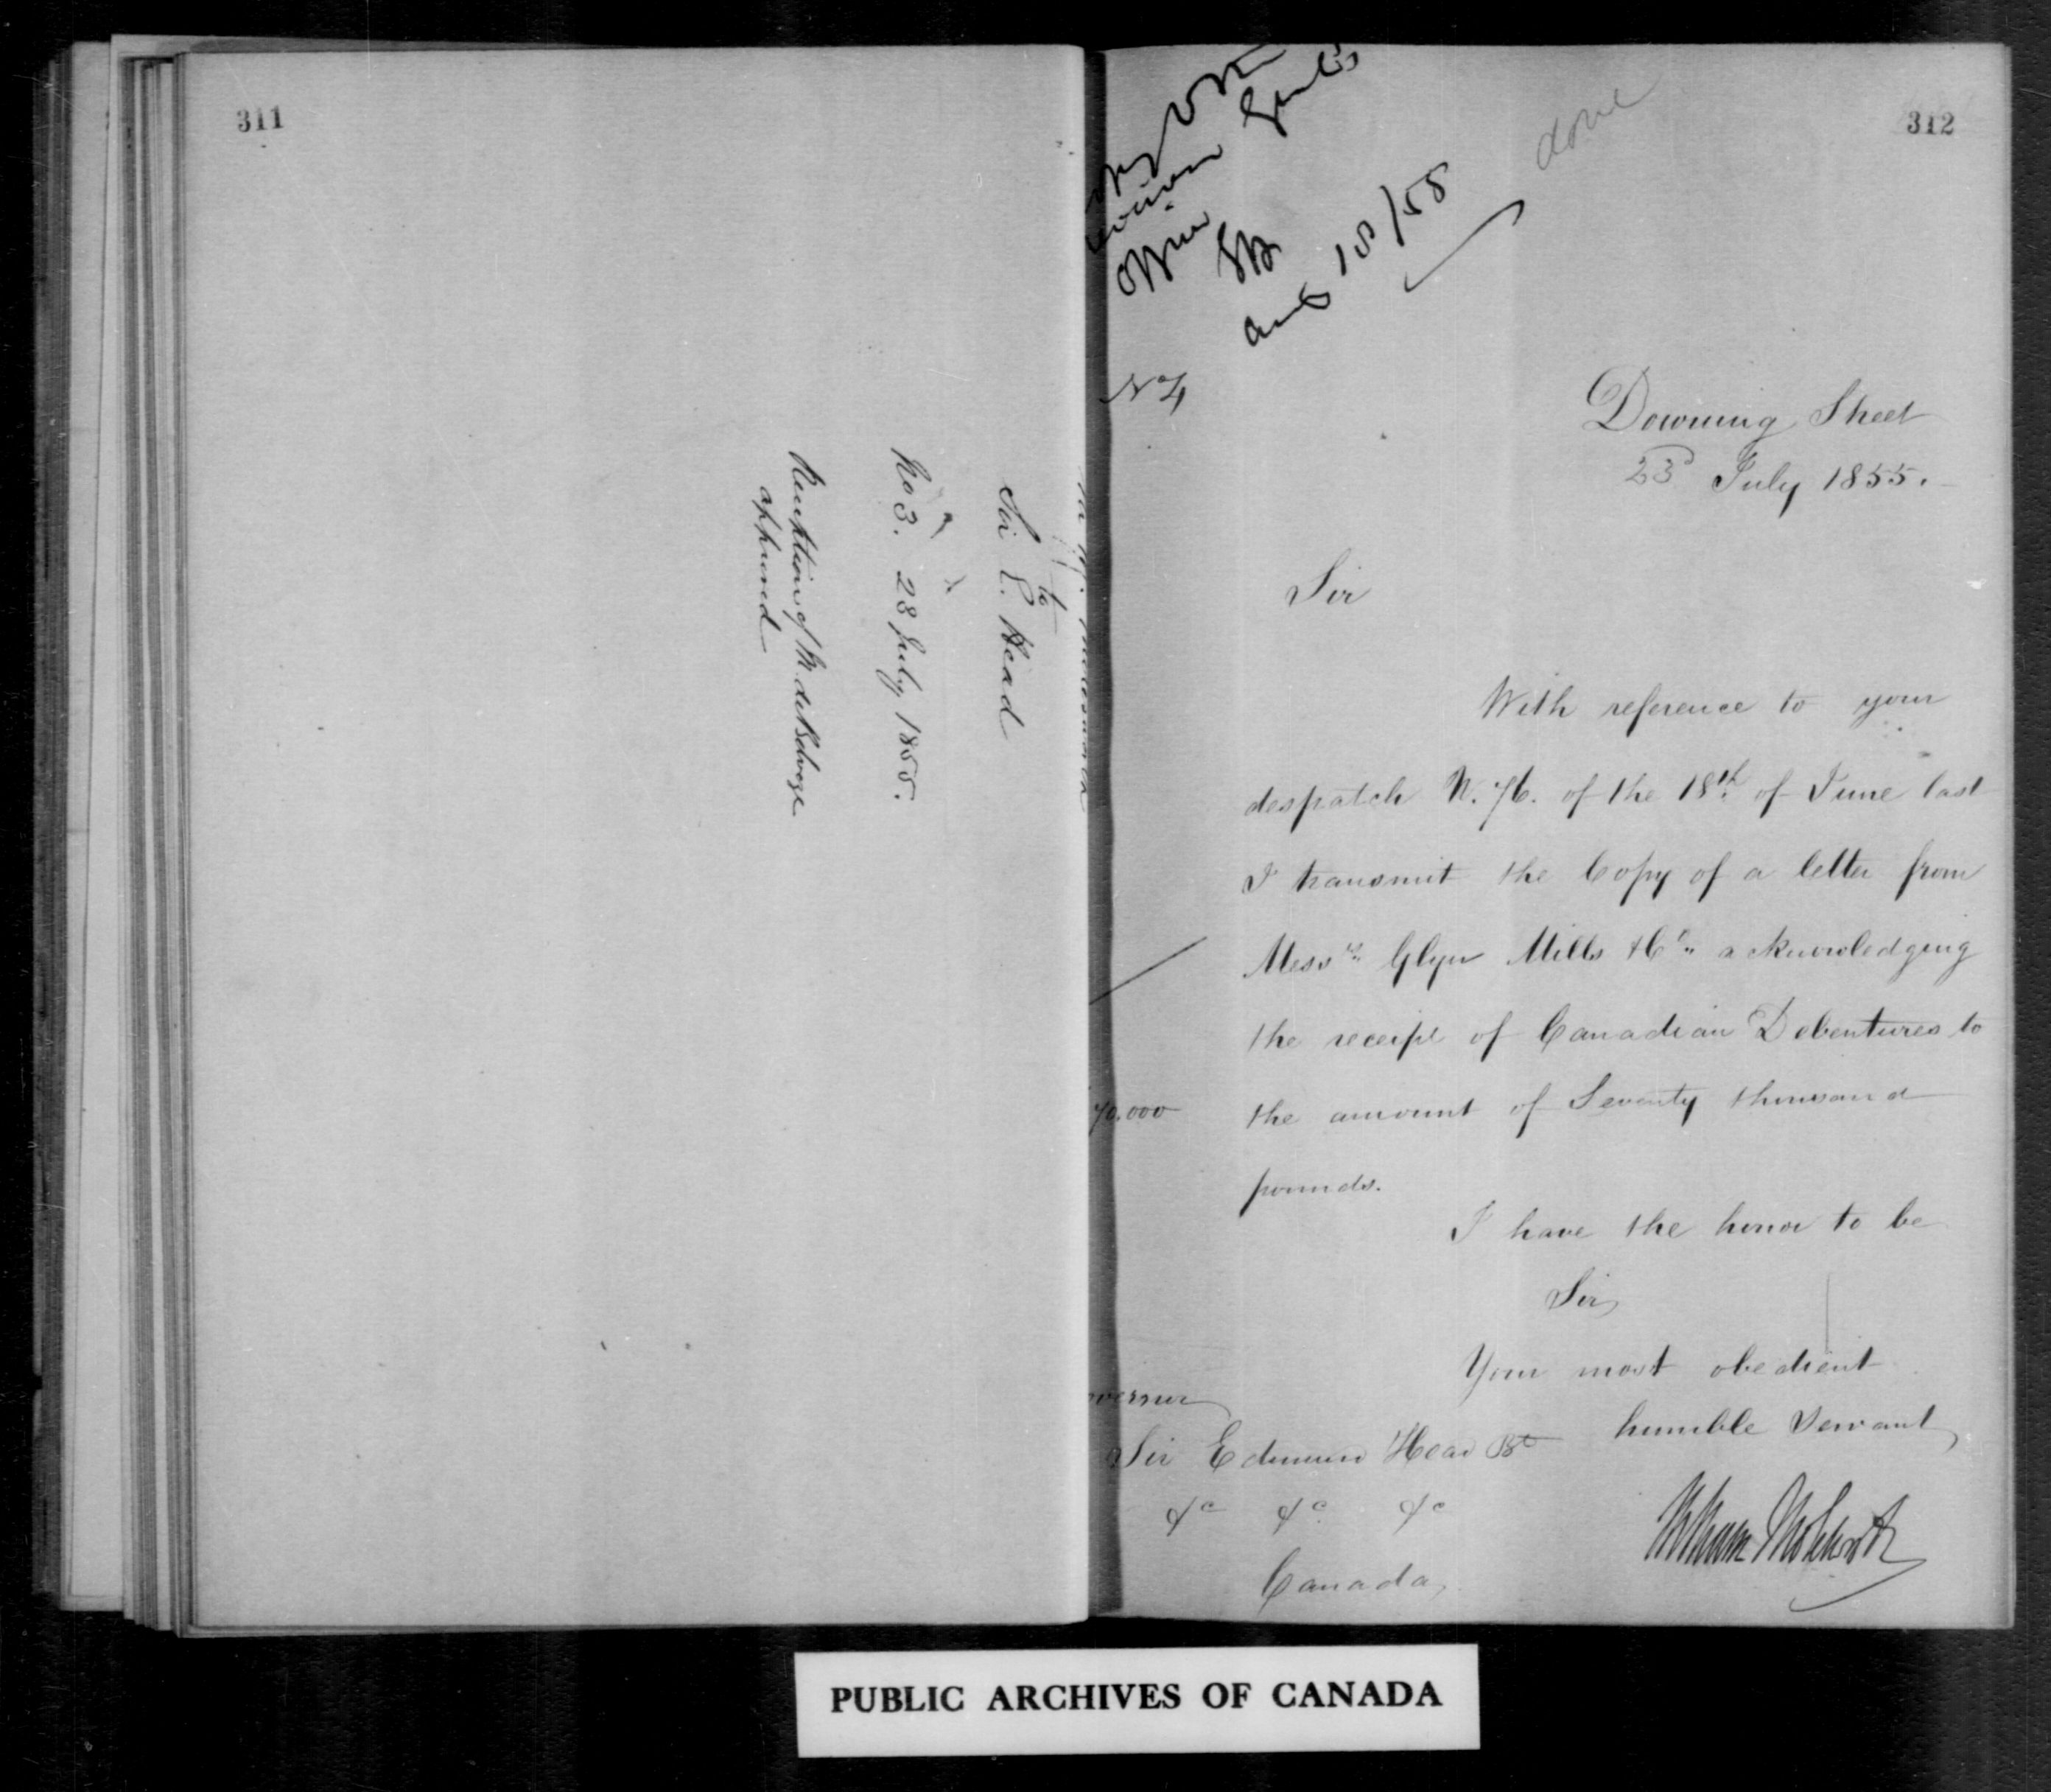 311
Sir W. Molesworth
to
Sir E. Head
No 3. 23 July 1855.
approved
312
done
Aug 10/55
No 4
Downing Street
23 July 1855.
Sir
With reference to your
despatch N. 76. of the 18th of June last
I transmit the Copy of a letter from
Messrs Glyn Mills & Co acknowledging
the receipt of Canadian Debentures to
70,000 the amount of Seventy thousand
pounds.
I have the honor to be
Sir,
Your most obedient
humble Servant
William Molesworth
Governor
Sir Edmund Head Bt
&c &c &c
Canada,
PUBLIC ARCHIVES OF CANADA